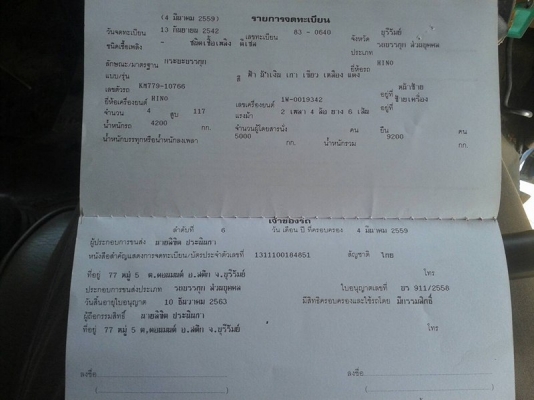 (4 มีนาคม 2559) รายการจดทะเบียน
วันจดทะเบียน 13 กันยายน 2542 เลขทะเบียน 83 - 0640 จังหวัด บุรีรัมย์
ชนิดเชื้อเพลิง - ชนิดเชื้อเพลิง ดีเซล ประเภท รถบรรทุก ส่วนบุคคล
ลักษณะ/มาตรฐาน กระบะบรรทุก ยี่ห้อรถ HINO
แบบ/รุ่น สี ฟ้า น้ำเงิน เทา เขียว เหลือง แดง
เลขตัวรถ KM779-10766 อยู่ที่
ยี่ห้อเครื่องยนต์ HINO เลขเครื่องยนต์ 1W-0019342 อยู่ที่ ซ้ายเครื่อง
จำนวน 4 สูบ 117 แรงม้า 2 เพลา 4 ล้อ ยาง 6 เส้น
น้ำหนักรถ 4200 กก. จำนวนผู้โดยสารนั่ง คน ยืน คน
น้ำหนักบรรทุกหรือน้ำหนักลงเพลา 5000 กก. น้ำหนักรวม 9200 กก.
เจ้าของรถ
ลำดับที่ 6 วัน เดือน ปี ที่ครอบครอง 4 มีนาคม 2559
ผู้ประกอบการขนส่ง
หนังสือสำคัญแสดงการจดทะเบียน/บัตรประจำตัวเลขที่ 1311100184851 สัญชาติ ไทย
ที่อยู่ 77 หมู่ 5 ต.ดอนมนต์ อ.สตึก จ.บุรีรัมย์ โทร
ประกอบการขนส่งประเภท รถบรรทุก ส่วนบุคคล ใบอนุญาตเลขที่ บร 911/2558
วันสิ้นอายุใบอนุญาต 10 ธันวาคม 2563 มีสิทธิครอบครองและใช้รถโดย มีกรรมสิทธิ์
ผู้ถือกรรมสิทธิ์
ที่อยู่ 77 หมู่ 5 ต.ดอนมนต์ อ.สตึก จ.บุรีรัมย์ โทร
ลงชื่อ ลงชื่อ